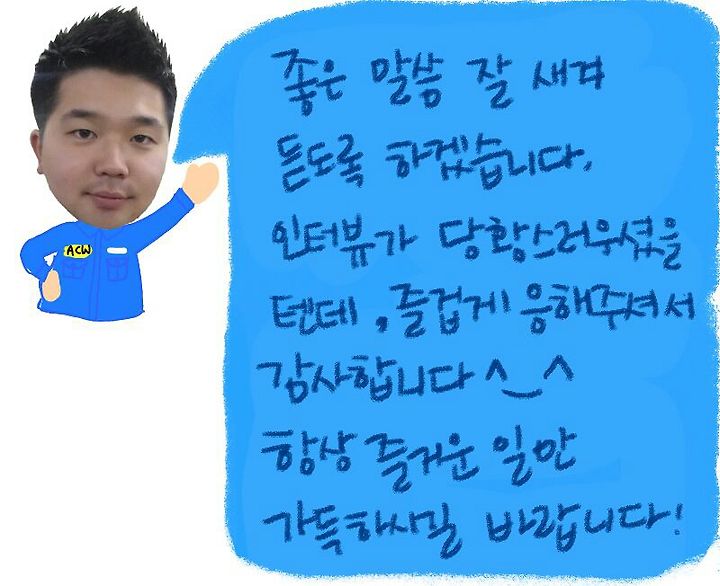 좋은 말씀 잘 새겨
듣도록 하겠습니다.
인터뷰가 당황스러우셨을
텐데, 즐겁게 응해주셔서
감사합니다 ^_^
항상 즐거운 일만
가득하시길 바랍니다!
ACW